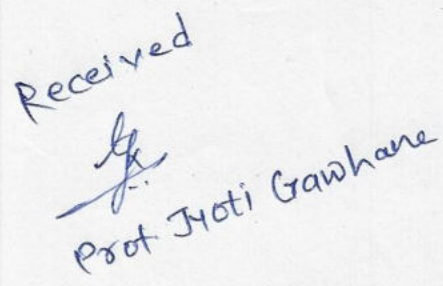 Received
Prof Jyoti Gawhane